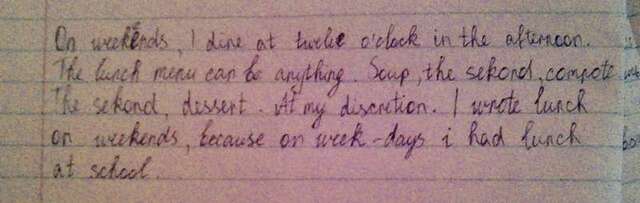 On weekends, I dine at twelve o'clock in the afternoon.
The lunch menu can be anything. Soup, the sekond, compote
The sekond, dessert. At my discretion. I wrote lunch
on weekends, because on week-days i had lunch
at school.